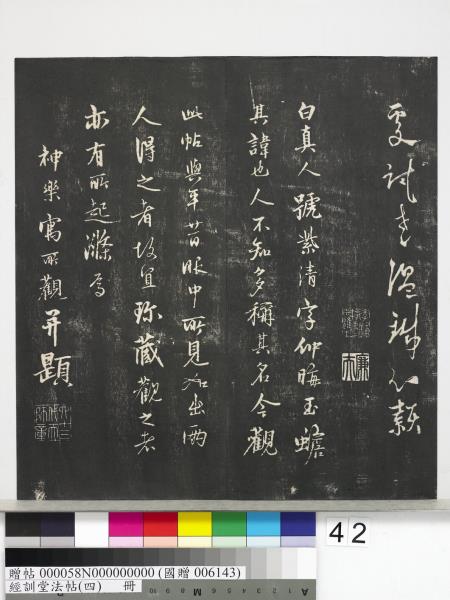 白真人號紫清字仲晦玉蟾
其諱也人不知多稱其名今觀
此帖與平昔眼中所見如出兩
人得之者故宜珍藏觀之者
亦有所起滌焉
神樂寓所觀并題
42
贈帖 000058N000000000 (國贈 006143)
經訓堂法帖(四) 冊